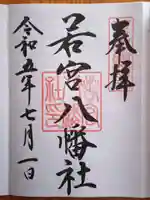 奉拝
若宮八幡社
令和五年七月一日